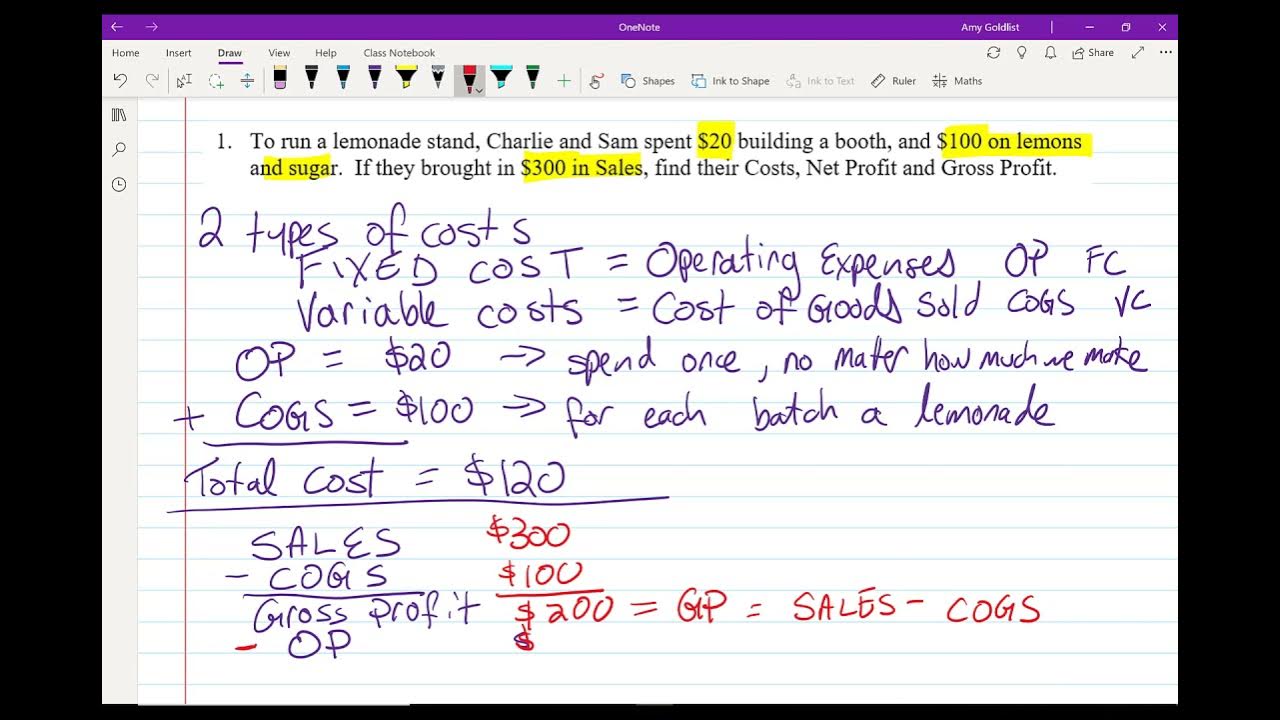 OneNote
Amy Goldlist
Home Insert Draw View Help Class Notebook
Share
Shapes Ink to Shape Ink to Text Ruler Maths
1. To run a lemonade stand, Charlie and Sam spent $20 building a booth, and $100 on lemons
and sugar. If they brought in $300 in Sales, find their Costs, Net Profit and Gross Profit.
2 types of costs
FIXED COST = Operating Expenses OP FC
Variable costs = Cost of Goods Sold COGS VC
OP = $20 → spend once, no mater how much we make
+ COGS = $100 → for each batch a lemonade
Total Cost = $120
SALES $300
- COGS $100
Gross profit $200 = GP = SALES - COGS
- OP $